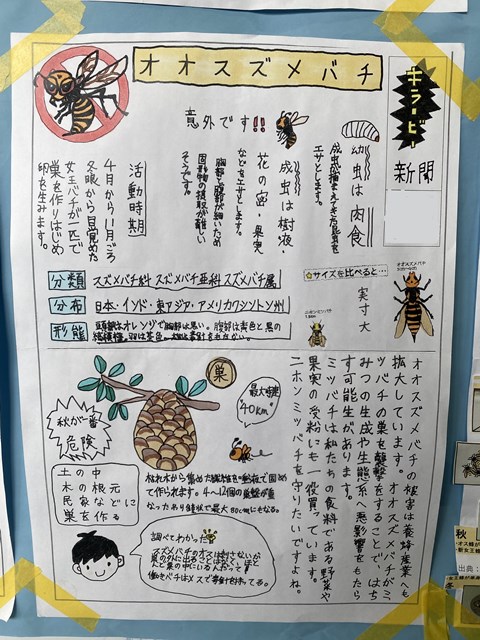 オオスズメバチ
キラービー
新聞
意外です!!
幼虫は肉食
成虫が捕まえてきた昆虫を
エサとします。
成虫は樹液・
花の蜜・果実
などをエサとします。
胸部と腹部が細いため
固形物の摂取が難しい
そうです。
活動時期
4月から11月ごろ
冬眠から目覚めた
女王バチが一匹で
巣を作りはじめ
卵を生みます。
分類 スズメバチ科 スズメバチ亜科 スズメバチ属
分布 日本・インド・東アジア・アメリカワシントン州
形態 頭部はオレンジで胸部は黒い。腹部は黄色と黒の
羽は茶色。
☆サイズを比べると…
実寸大
オオスズメバチ
ニホンミツバチ
オオスズメバチの被害は養蜂産業へも
拡大しています。オオスズメバチがミ
ツバチの巣を襲撃をすることで、はち
みつの生成や生態系へ悪影響をもたら
す可能生があります。
ミツバチは私たちの食料である野菜や
果実の受粉にも一役買っています。
ニホンミツバチを守りたいですよね。
巣
最大時速
40km
秋が一番
危険
土の中
木の根元
民家などに
巣を作る
枯れ木から集めた繊維を唾液で固め
て作られます。4〜12個の巣盤が重
なったあり鐘状で最大80cmにもなる。
調べてわかった
スズメバチのオスは刺さないが
巣の外に出ることはなく、ほと
んど巣の中にいるんだって!
働きバチはメスで毒針を持ってる。
秋
出典: